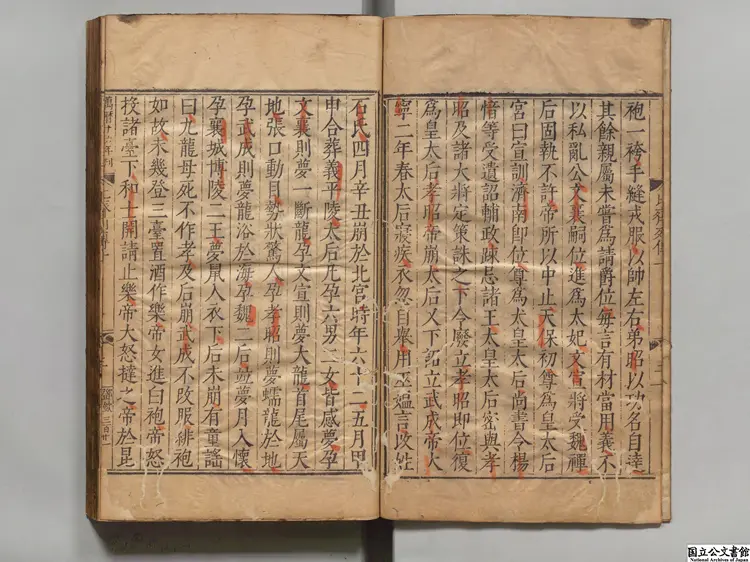 袍一袴手縫戎服以帥左右弟昭以功名自達
其餘親屬未嘗爲請爵位每言有材當用義不
以私亂公文襄嗣位進爲太妃文宣將受魏禪
后固執不許帝所以中止天保初尊爲皇太后
宮曰宣訓濟南即位尊爲太皇太后尚書令楊
愔等受遺詔輔政疎忌諸王太皇太后密與孝
昭及諸大將定策誅之下令廢立孝昭即位復
爲皇太后孝昭帝崩太后又下詔立武成帝大
寧二年春太后寢疾衣忽自舉用巫媼言改姓
石氏四月辛丑崩於北宮時年六十二五月甲
申合葬義平陵太后凡孕六男二女皆感夢孕
文襄則夢一斷龍孕文宣則夢大龍首尾屬天
地張口動目勢狀驚人孕孝昭則夢蠕龍於地
孕武成則夢龍浴於海孕魏二后並夢月入懷
孕襄城博陵二王夢鼠入衣下后未崩有童謠
曰九龍母死不作孝及后崩武成不改服緋袍
如故未幾登三臺置酒作樂帝女進白袍帝怒
投諸臺下和士開請止樂帝大怒撻之帝於昆
国立公文書館
National Archives of Japan